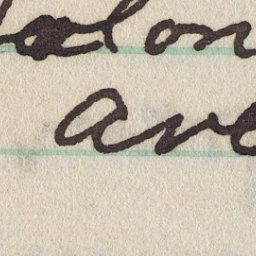 alon
are